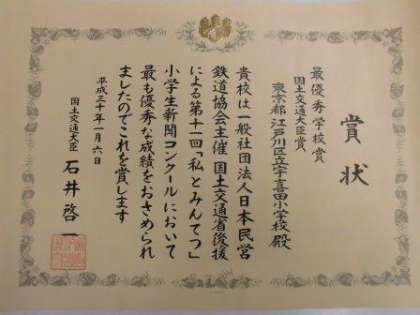 賞状
最優秀学校賞
国土交通大臣賞
東京都江戸川区立宇喜田小学校殿
貴校は一般社団法人日本民営
鉄道協会主催国土交通省後援
による第十一回「私とみんてつ」
小学生新聞コンクールにおいて
最も優秀な成績をおさめられ
ましたのでこれを賞します
平成三十年一月六日
国土交通大臣
石井啓一